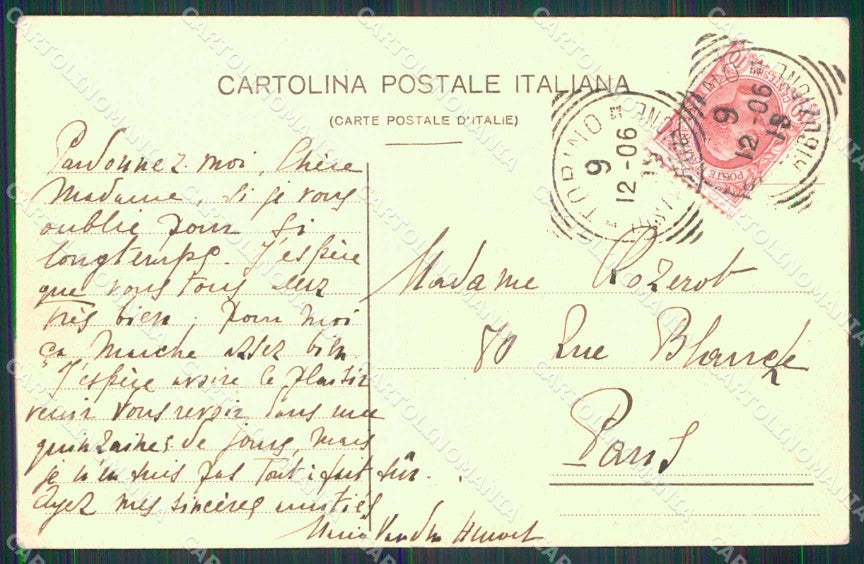 CARTOLINA POSTALE ITALIANA
(CARTE POSTALE D'ITALIE)
TORINO
9
12-06
19
9
12-06
19
POSTE
Pardonnez moi, Chère
Madame, si je vous
oublie pour si
longtemps. J'espère
que vous tous allez
très bien, pour moi
ça marche assez bien
J'espère avoire le plaisir
venir vous revoir dans une
quinzaines de jours, mais
je n'en suis pas tout i fait sûr.
Ayez mes sincères amitiés
Madame Rozerot
80 Rue Blanche
Paris
CARTOLINOMANIA